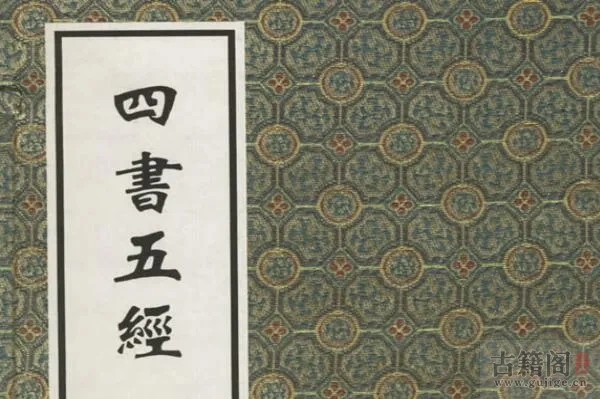 四書五經
古籍阁
www.gujige.cn